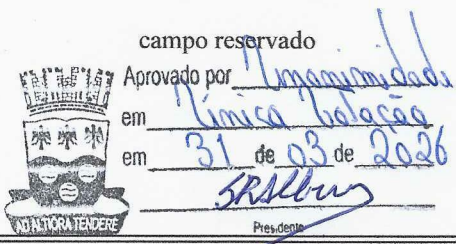 campo reservado
Aprovado por Unanimidade
em Única Votação
em 31 de 03 de 2026
Presidente
AD ALTIORA TENDERE